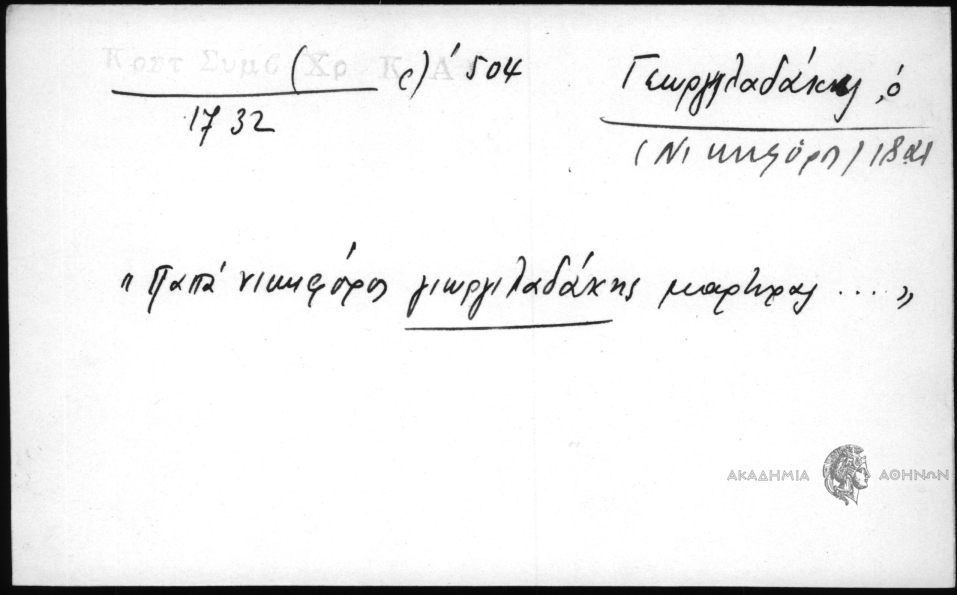 Κρητ Συμβ (Χρ Κ Α ς) ΄ 504
1732
Γεωργιλαδάκης, ὁ
(Νικηφόρος) 18
"Παπά νικηφόρος γιωργιλαδάκης μαρτυρας ...."
ΑΚΑΔΗΜΙΑ ΑΘΗΝΩΝ